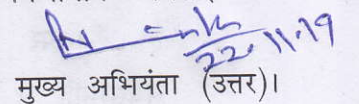 22.11.19
मुख्य अभियंता (उत्तर)।